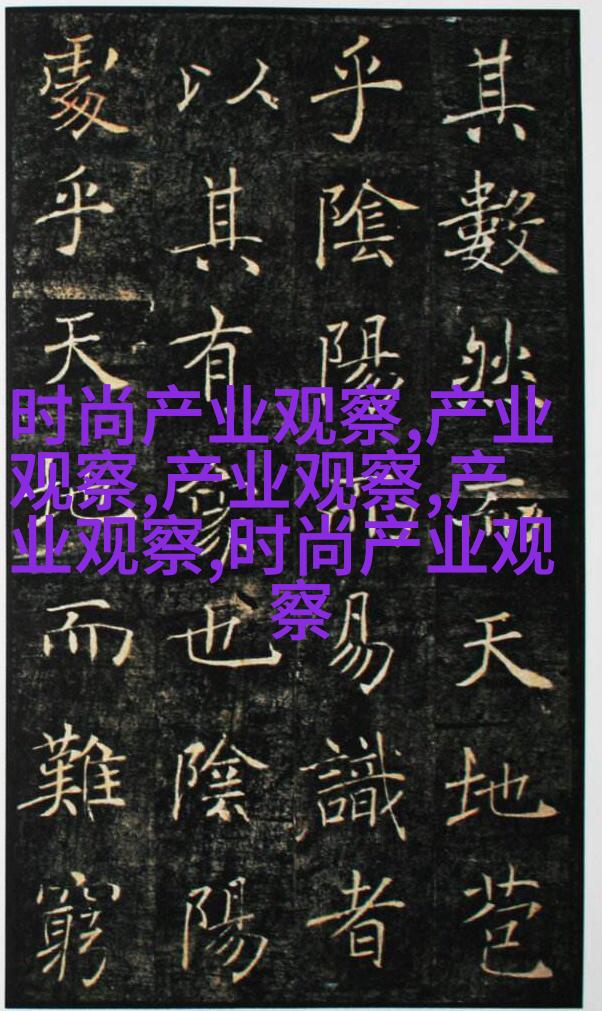 其數然而天地苞
乎陰陽而易識者
以其有象也陰陽
處乎天地而難窮
时尚产业观察,产业
观察,产业观察,产
业观察,时尚产业观
察